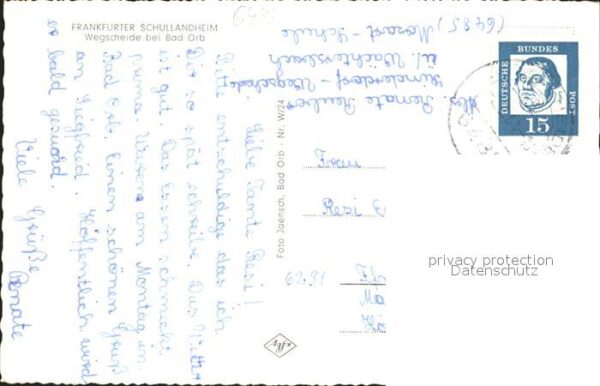 FRANKFURTER SCHULLANDHEIM
Wegscheide bei Bad Orb
Liebe Tante Resi!
Bitte entschuldige das ich
Dir so spät schreibe. Das Wetter
ist gut. Das Essen schmeckt
prima. Waren am Montag in
Bad Orb. Einen schönen Gruß
an Siegfried. Hoffentlich wird
er bald gesund.
Viele Grüße
Renate
Foto Jaensch, Bad Orb - Nr. W/24
Abs. Renate
Kinderdorf - Wegscheide
ü/ Wächtersbach
(6485) Mozart - Schule
DEUTSCHE BUNDESPOST
15
6231
privacy protection
Datenschutz